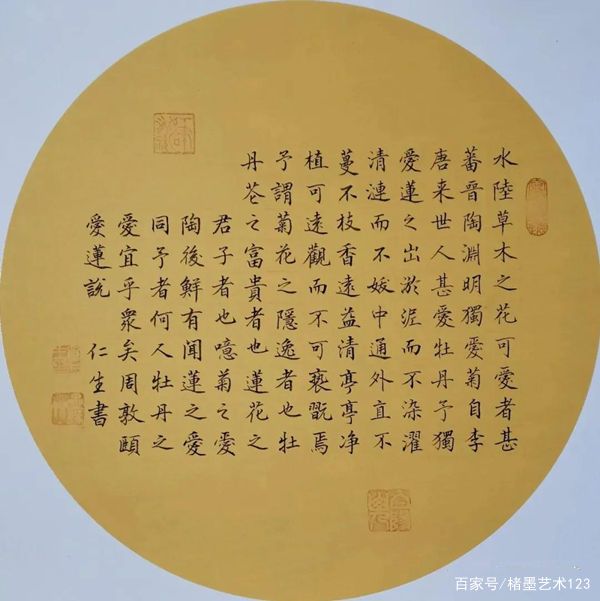 水陸草木之花可愛者甚
蕃晉陶淵明獨愛菊自李
唐来世人甚愛牡丹予獨
愛蓮之出於泥而不染濯
清漣而不妖中通外直不
蔓不枝香遠益清亭亭净
植可遠觀而不可褻翫焉
予謂菊花之隱逸者也牡
丹花之富貴者也蓮花之
君子者也噫菊之愛
陶後鮮有闻蓮之愛
同予者何人牡丹之
愛宜乎衆矣周敦頤
愛蓮說 仁生書
百家号/楮墨艺术123